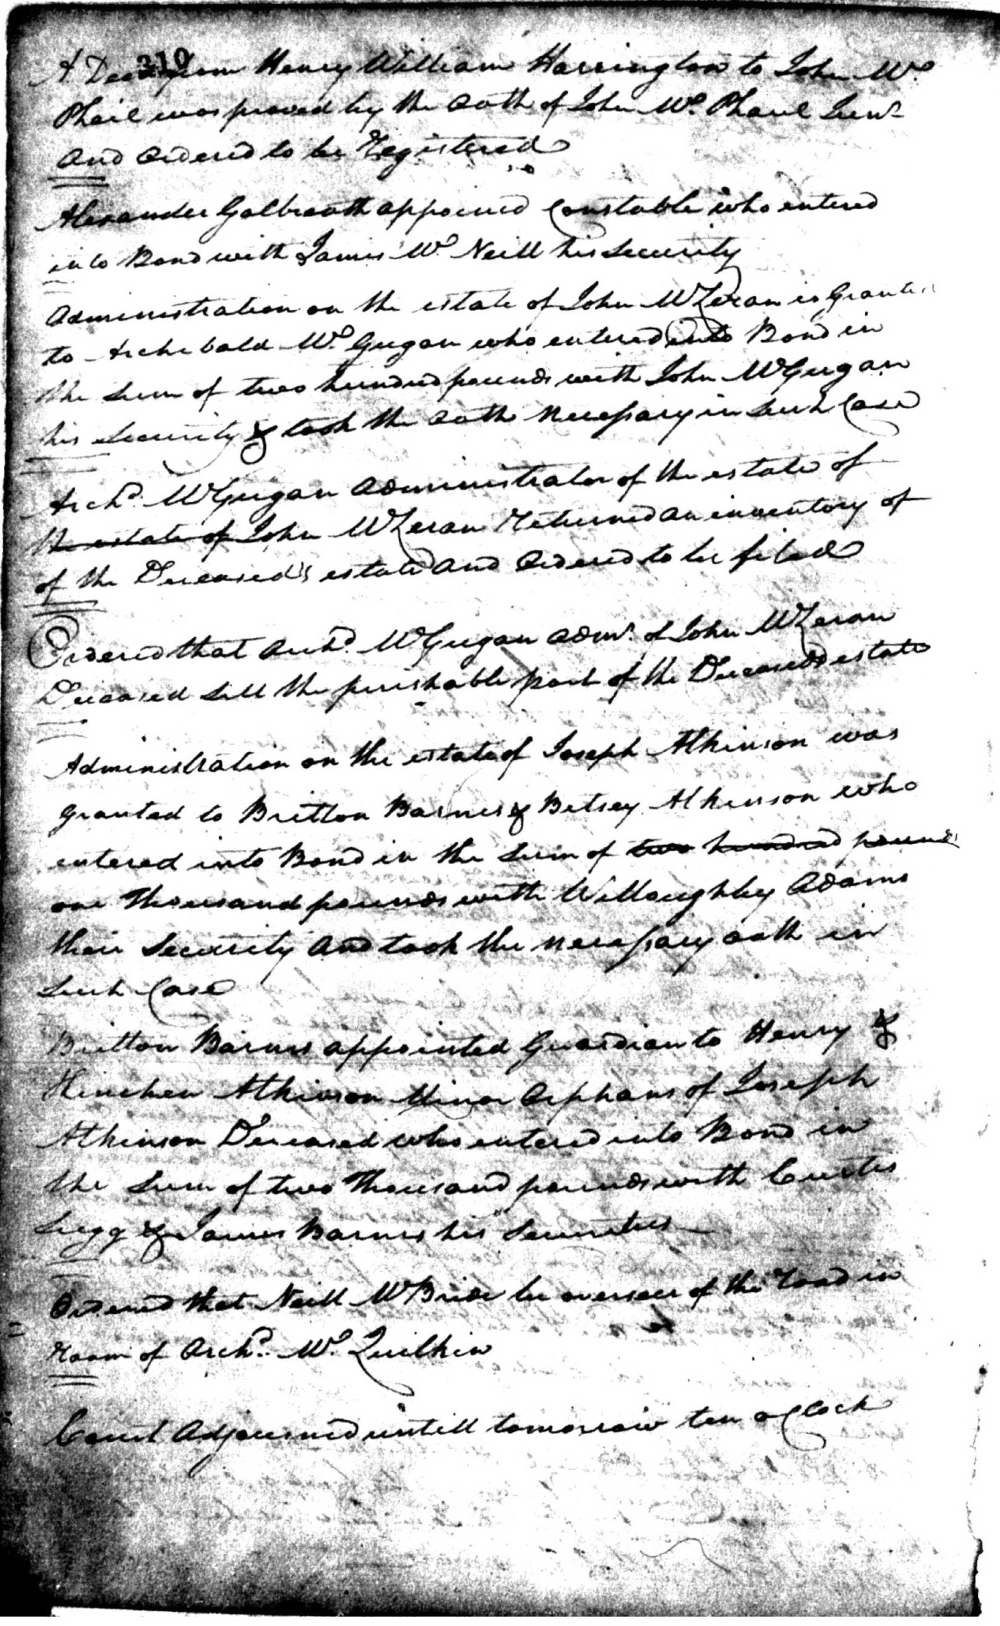 310
A Deed from Henry William Harrington to John Mc
Phail was proved by the Oath of John Mc Phaul Junr
And Ordered to be Registered
Alexander Galbreath appoined Constable who entered
into Bond with James Mc Neill his Security
Administration on the estate of John McLeran is Granted
to Archebald Mc Gugan who entered into Bond in
the Sum of two hundred pounds with John McGugan
his Security & took the Oath Necessary in Such Case
Archd. McGugan Administrator of the estate of
the estate of John McLeran Returned an inventory of
of the Deceased's estate And Ordered to be filed
Ordered that Archd. McGugan Admr. of John McLeran
Deceased Sell the perishable part of the Deceaseds estate
Administration on the estate of Joseph Atkinson was
granted to Britton Barnes & Betsey Atkinson who
entered into Bond in the Sum of two hundred pounds
one thousand pounds with Willoughby Adams
their Security And took the necessary oath in
Such Case
Britton Barnes appointed Guardian to Henry &
Hinchen Atkinson Minor Orphans of Joseph
Atkinson Deceased who entered into Bond in
the Sum of two thousand pounds with
Sugg & James Barnes his Securities
Ordered that Neill McBride be overseer of the road in
Room of Archd. Mc Quilkin
Court Adjourned untill tomorrow ten o Clock